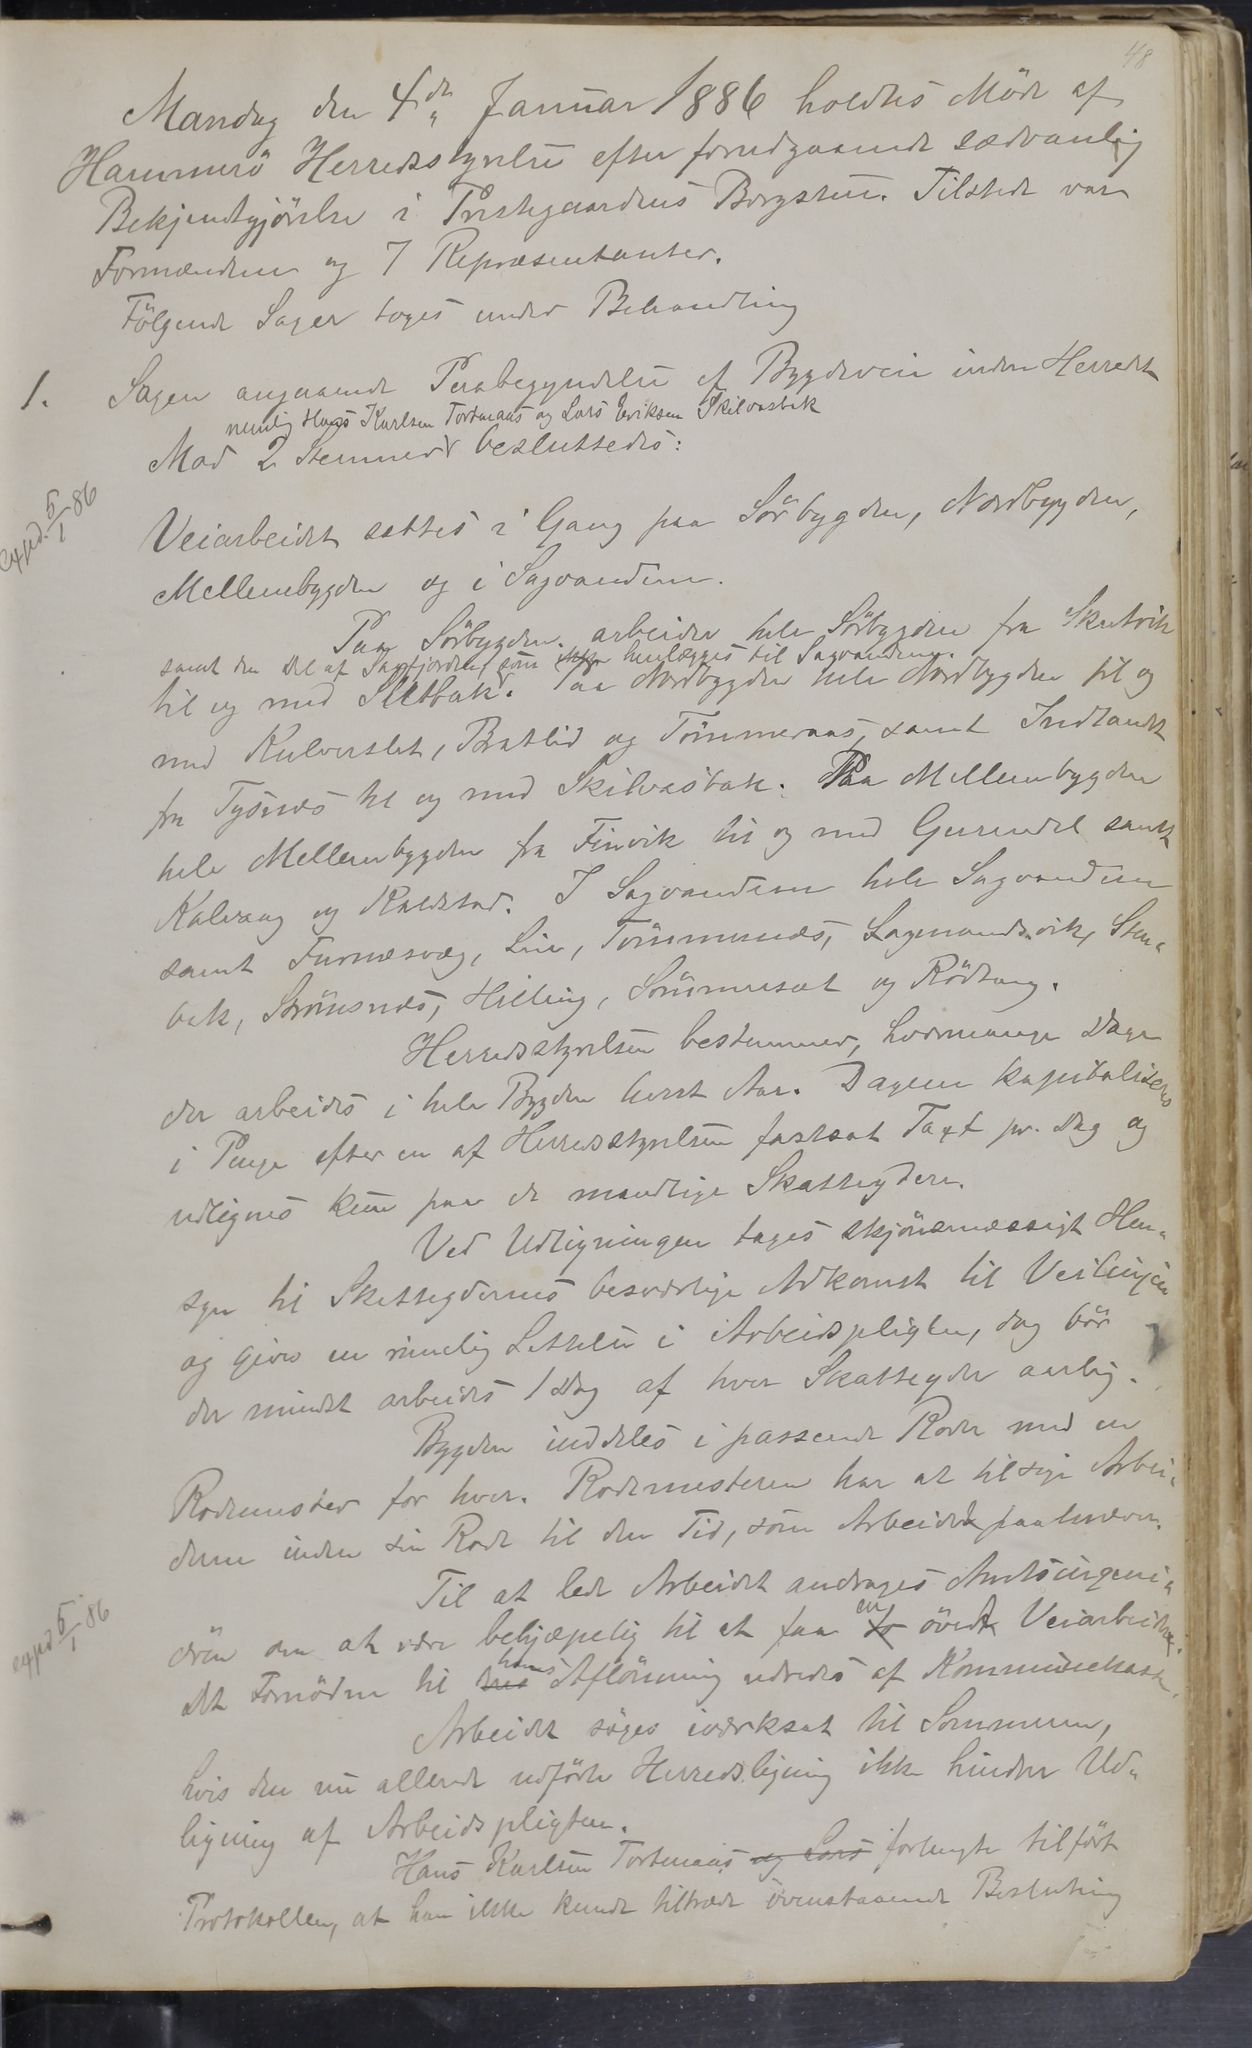 48
Mandag den 4de Januar 1886 holdtes Möde af
Hammerö Herredsstyrelse efter forudgaaende sædvanlig
Bekjendtgjörelse i Prestegaardens Borgstue. Tilstede var
Formanden og 7 Repræsentanter.
Fölgende Sager toges under Behandling
1. Sagen angaaende Paabegyndelse af Bygdeveie inden Herredet
nemlig Hans Karlsen Tortenaas og Lars Eriksen Skilvasbak
Mod 2 Stemmer besluttedes:
exped. 5/1 86
Veiarbeidet sættes i Gang paa Sörbygden, Nordbygden,
Mellembygden og i Sagvandene.
Paa Sörbygden arbeider hele Sörbygden fra Skutvik
samt den Del af Sagfjorden, som ikke henlægges til Sagvandene.
til og med Sletbak. Paa Nordbygden hele Nordbygden til og
med Kulverslet, Bratlid og Tömmeraas, samt Indlandet
fra Tysnes til og med Skilvasbak. Paa Mellembygden
hele Mellembygden fra Finvik til og med Gusendal samt
Kalvaag og Kaldstad. I Sagvandene hele Sagvandene
samt Furnæsvæg, Lie, Tömmernæs, Lagmandsvik, Sten-
bak, Strömsnæs, Hilling, Sommersæt og Rödsang.
Herredsstyrelsen bestemmer, hvormange Dage
der arbeides i hele Bygden hvert Aar. Dagene kapitaliseres
i Penge efter en af Herredsstyrelsen fastsat Taxt pr. Dag og
udlignes kun paa de mandlige Skatteydere.
Ved Udligningen tages skjönsmæssigt Hen-
syn til Skatteydernes besværlige Adkomst til Veilinjen
og gives en rimelig Lettelse i Arbeidspligten, dog bör
der mindst arbeides 1 Dag af hver Skatteyder aarlig.
Bygden inddeles i passende Roder med en
Rodemester for hver. Rodemesteren har at tilsige Arbei-
derne inden sin Rode til den Tid, som Arbeidet paakræver.
Til at lede Arbeidet andrages Amtsingeni-
exped 5/1 86
ören om at være behjælpelig til at faa en to övet Veiarbeider.
Det Fornödne til hans Aflönning udredes af Kommunekassen.
Arbeidet söges iværksat til Sommeren,
hvis den nu allerede udförte Herredsligning ikke hindrer Ud-
ligning af Arbeidspligten.
Hans Karlsen Tortenaas og Lars forlangte tilfört
Protokollen, at han ikke kunde tiltræde ovenstaaende Beslutning